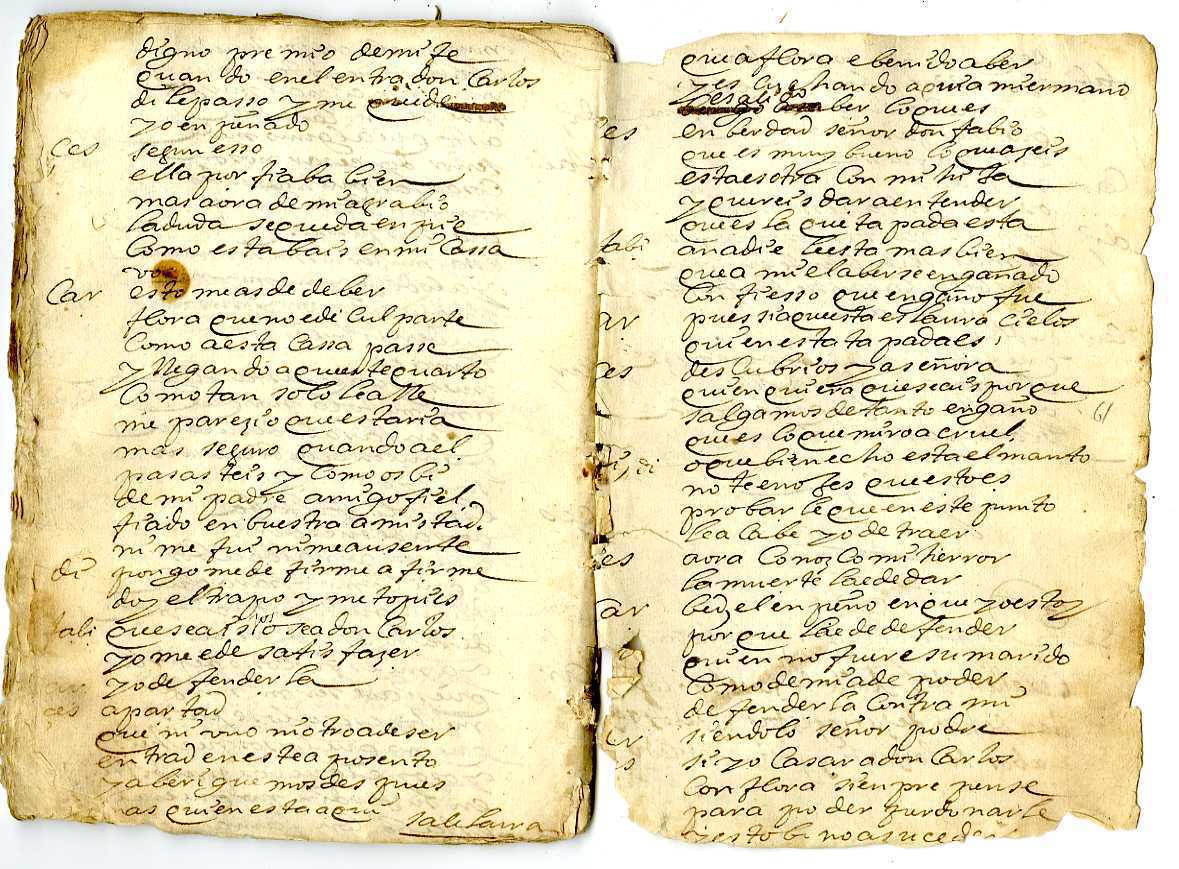 digno premio de mi fe
quando en el entra don Carlos
di le passo y me quede
yo enpeñado
ces segun esso
ella porfiaba bien
mas aora de mi agrabio
la duda se queda en pie
como estabais en mi cassa
vos
Car esto me as de deber
flora que no e di culparte
como a esta cassa passe
y llegando a queste quarto
como tan solo le alle
me parezio que estaria
mas seguro quando a el
pasasteis y como os bi
de mi padre amigo fiel
fiado en buestra amistad
ni me fui ni me ausente
di pongome de firme a firme
doy el trapo y me
fabi que seais vos o sea don Carlos
yo me e de satisfazer
car yo defenderla
ces apartad
que ni uno ni otro a de ser
entrad en este aposento
y aberiguemos despues
mas quien esta aqui sale laura
que a flora e benido a ber
y escuchando a qui a mi ermano
y e salido a ber lo que es
ces en berdad señor don fabio
que es muy bueno lo que azeis
esta es otra con mi hija
y quereis dar a entender
que es la que tapada esta
fabi a nadie le esta mas bien
que a mi el aberse engañado
confiesso que engaño fue
car pues si a questa es laura cielos
quien esta tapada es
ces descubrios ya señora
quien quiera que seais por que
salgamos de tanto engaño
que es lo que miro a cruel
di o que bien echo esta el manto
no te enojes que esto es
probar le que en este punto
le acabe yo de traer
ces aora conozco mi hierror
la muerte la e de dar
car bed el enpeño en que yo estoy
por que la e de defender
quien no fuere su marido
como de mi a de poder
defenderla contra mi
car siendolo señor podre
ces si yo casar a don Carlos
con flora sienpre pense
para poder perdonarle
y esto bino a suceder